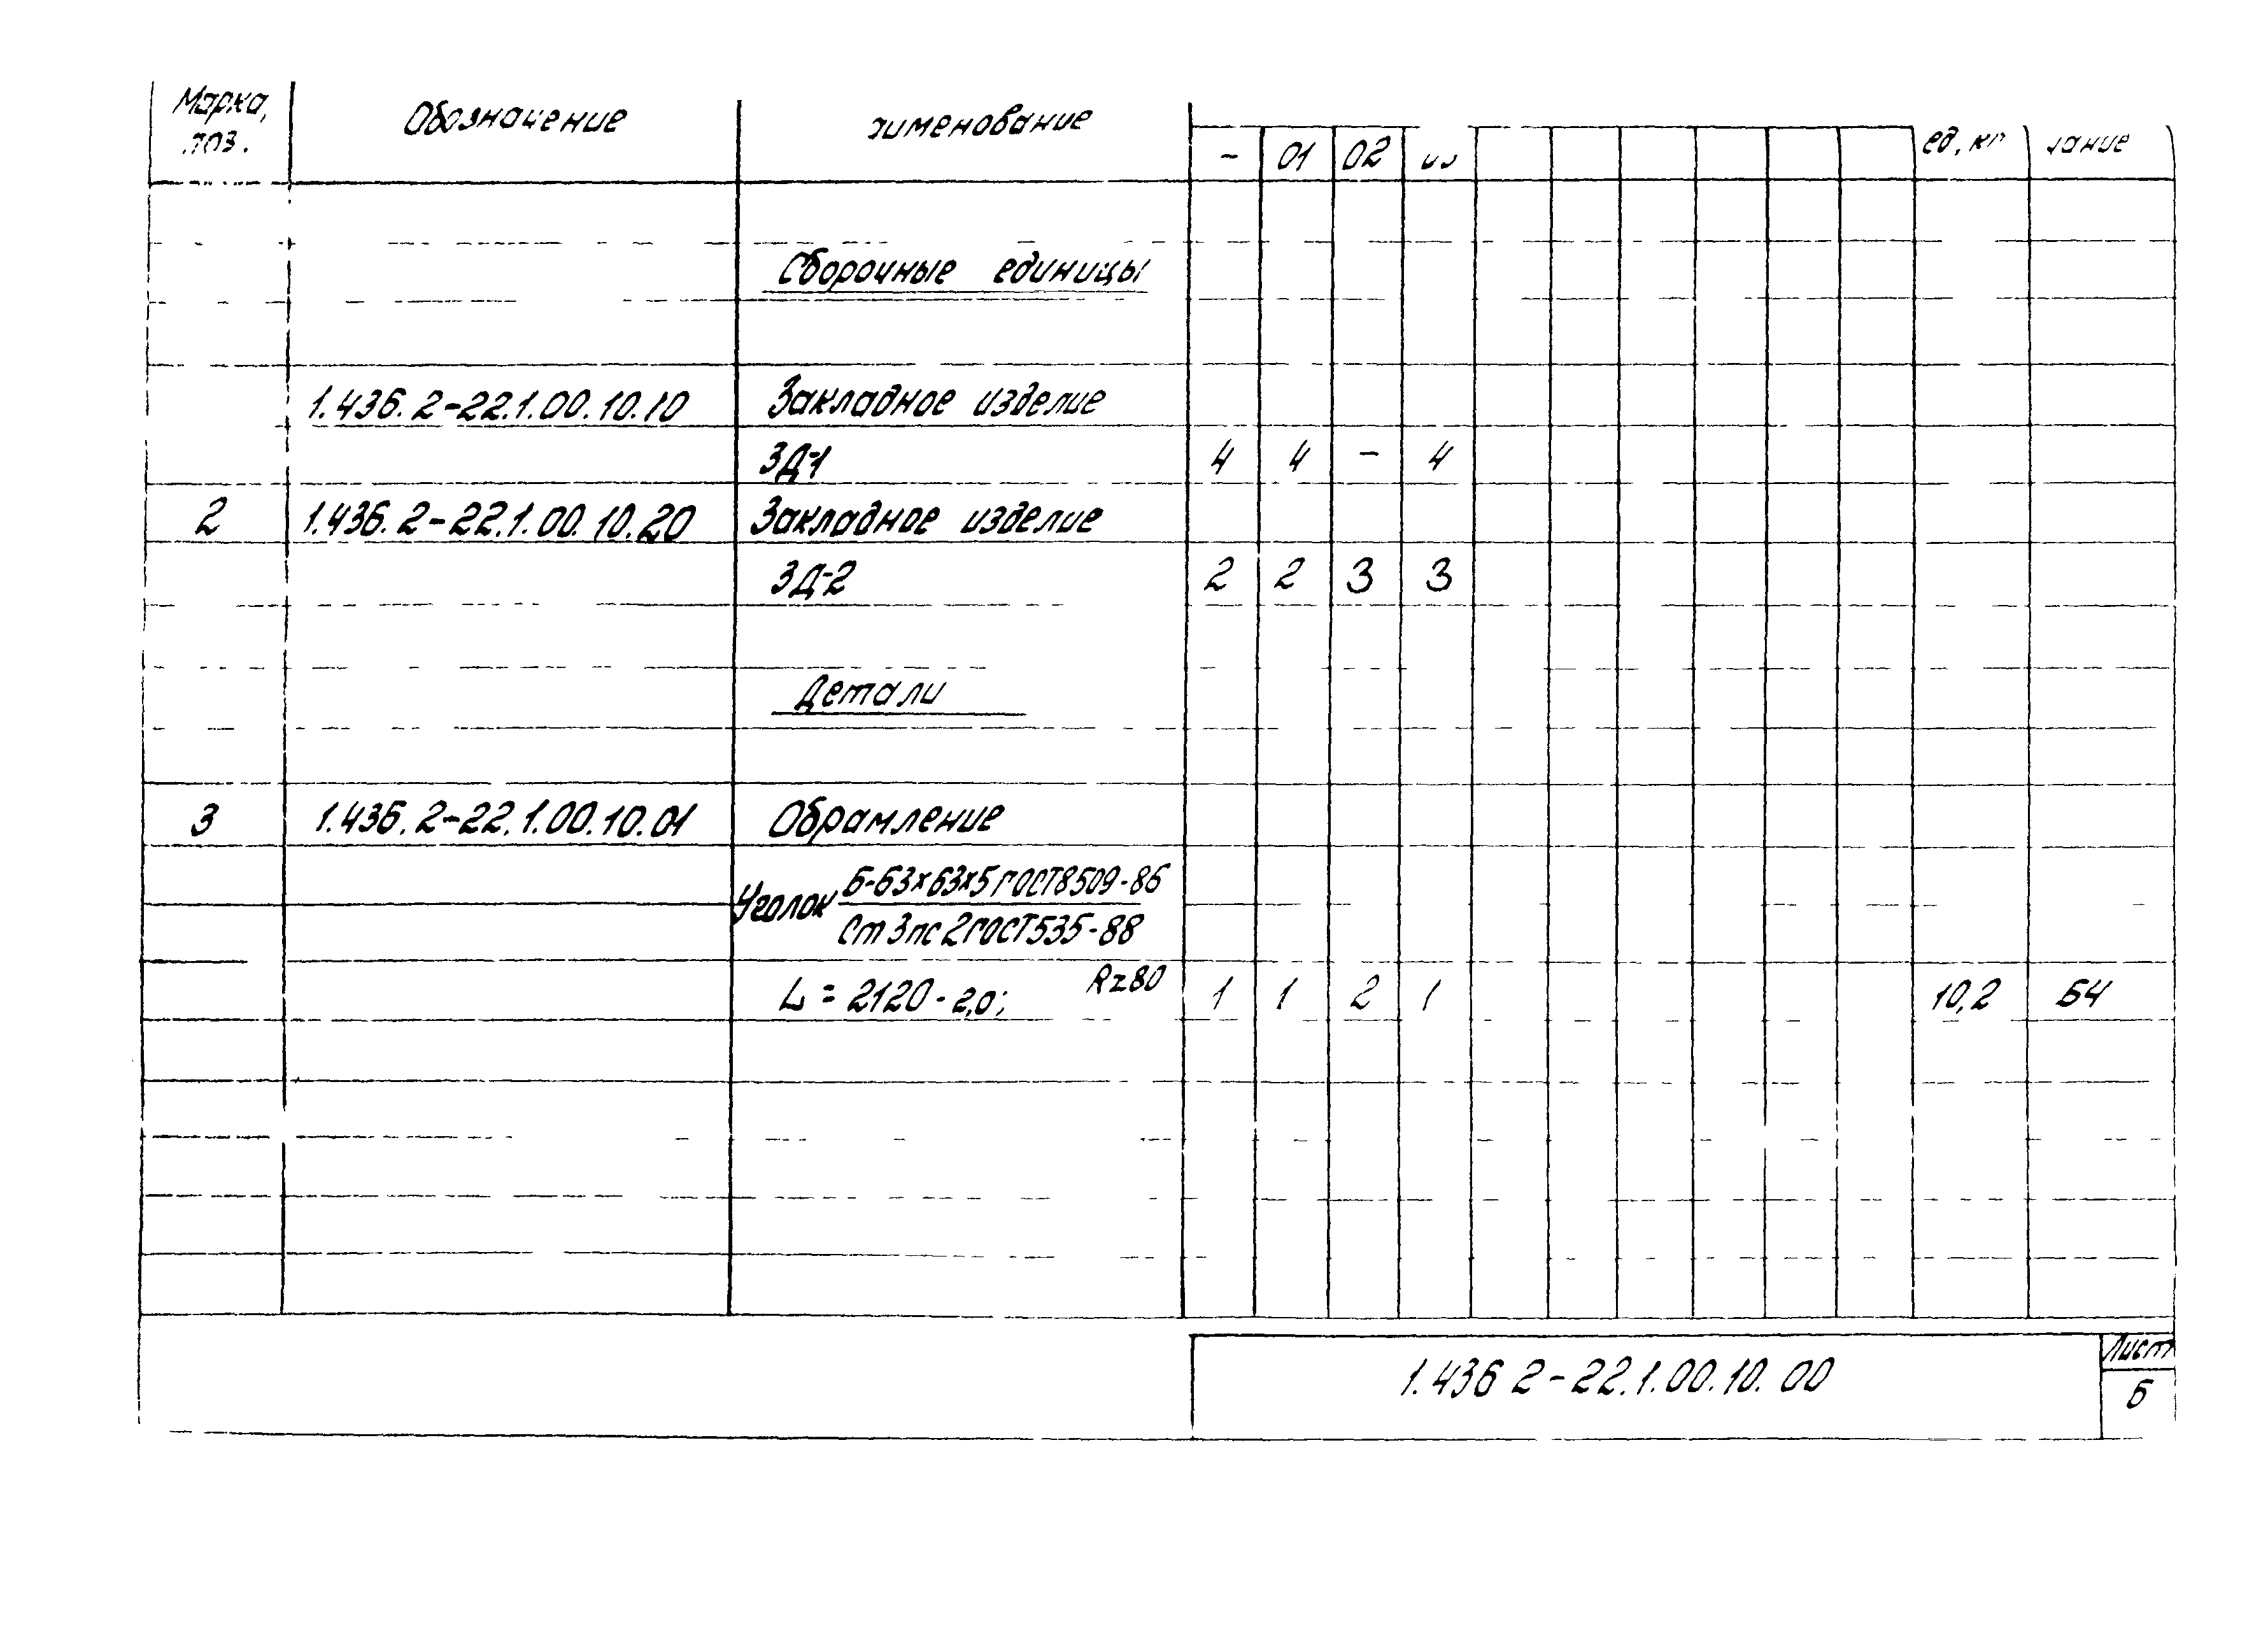 Марка,
поз.
Обозначение
именование
- 01 02
ед, кг
чание
Сборочные единицы
1.436.2-22.1.00.10.10 Закладное изделие
ЗД-1 4 4 - 4
2 1.436.2-22.1.00.10.20 Закладное изделие
ЗД-2 2 2 3 3
Детали
3 1.436.2-22.1.00.10.01 Обрамление
Уголок Б-63х63х5 ГОСТ8509-86
Ст 3пс 2 ГОСТ535-88
L = 2120 - 2,0; Rz80 1 1 2 1 10,2 БЧ
1.436 2-22.1.00.10.00
Лист